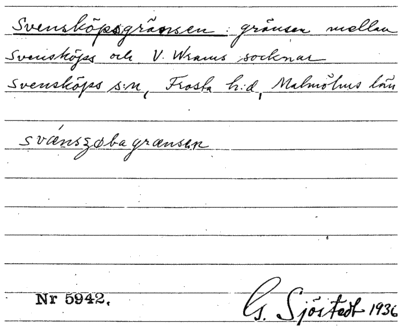 Svensköpsgränsen: gränsen mellan
Svensköps och V. Wrams socknar
Svensköps s:n, Frosta h:d, Malmöhus län
svänsʒøbagrænsen
Nr 5942.
G. Sjöstedt 1936